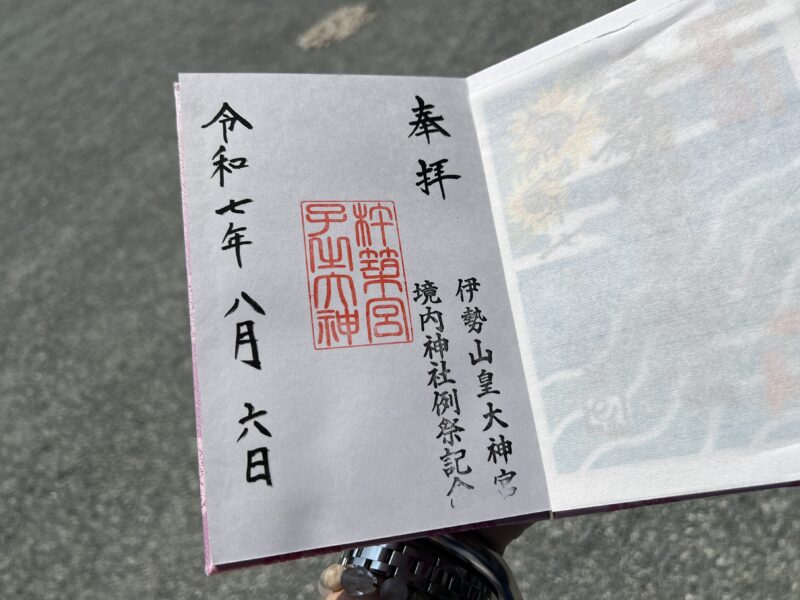 奉拝
伊勢山皇大神宮
境内神社例祭記念
杵築宮
子之大神
令和七年八月六日